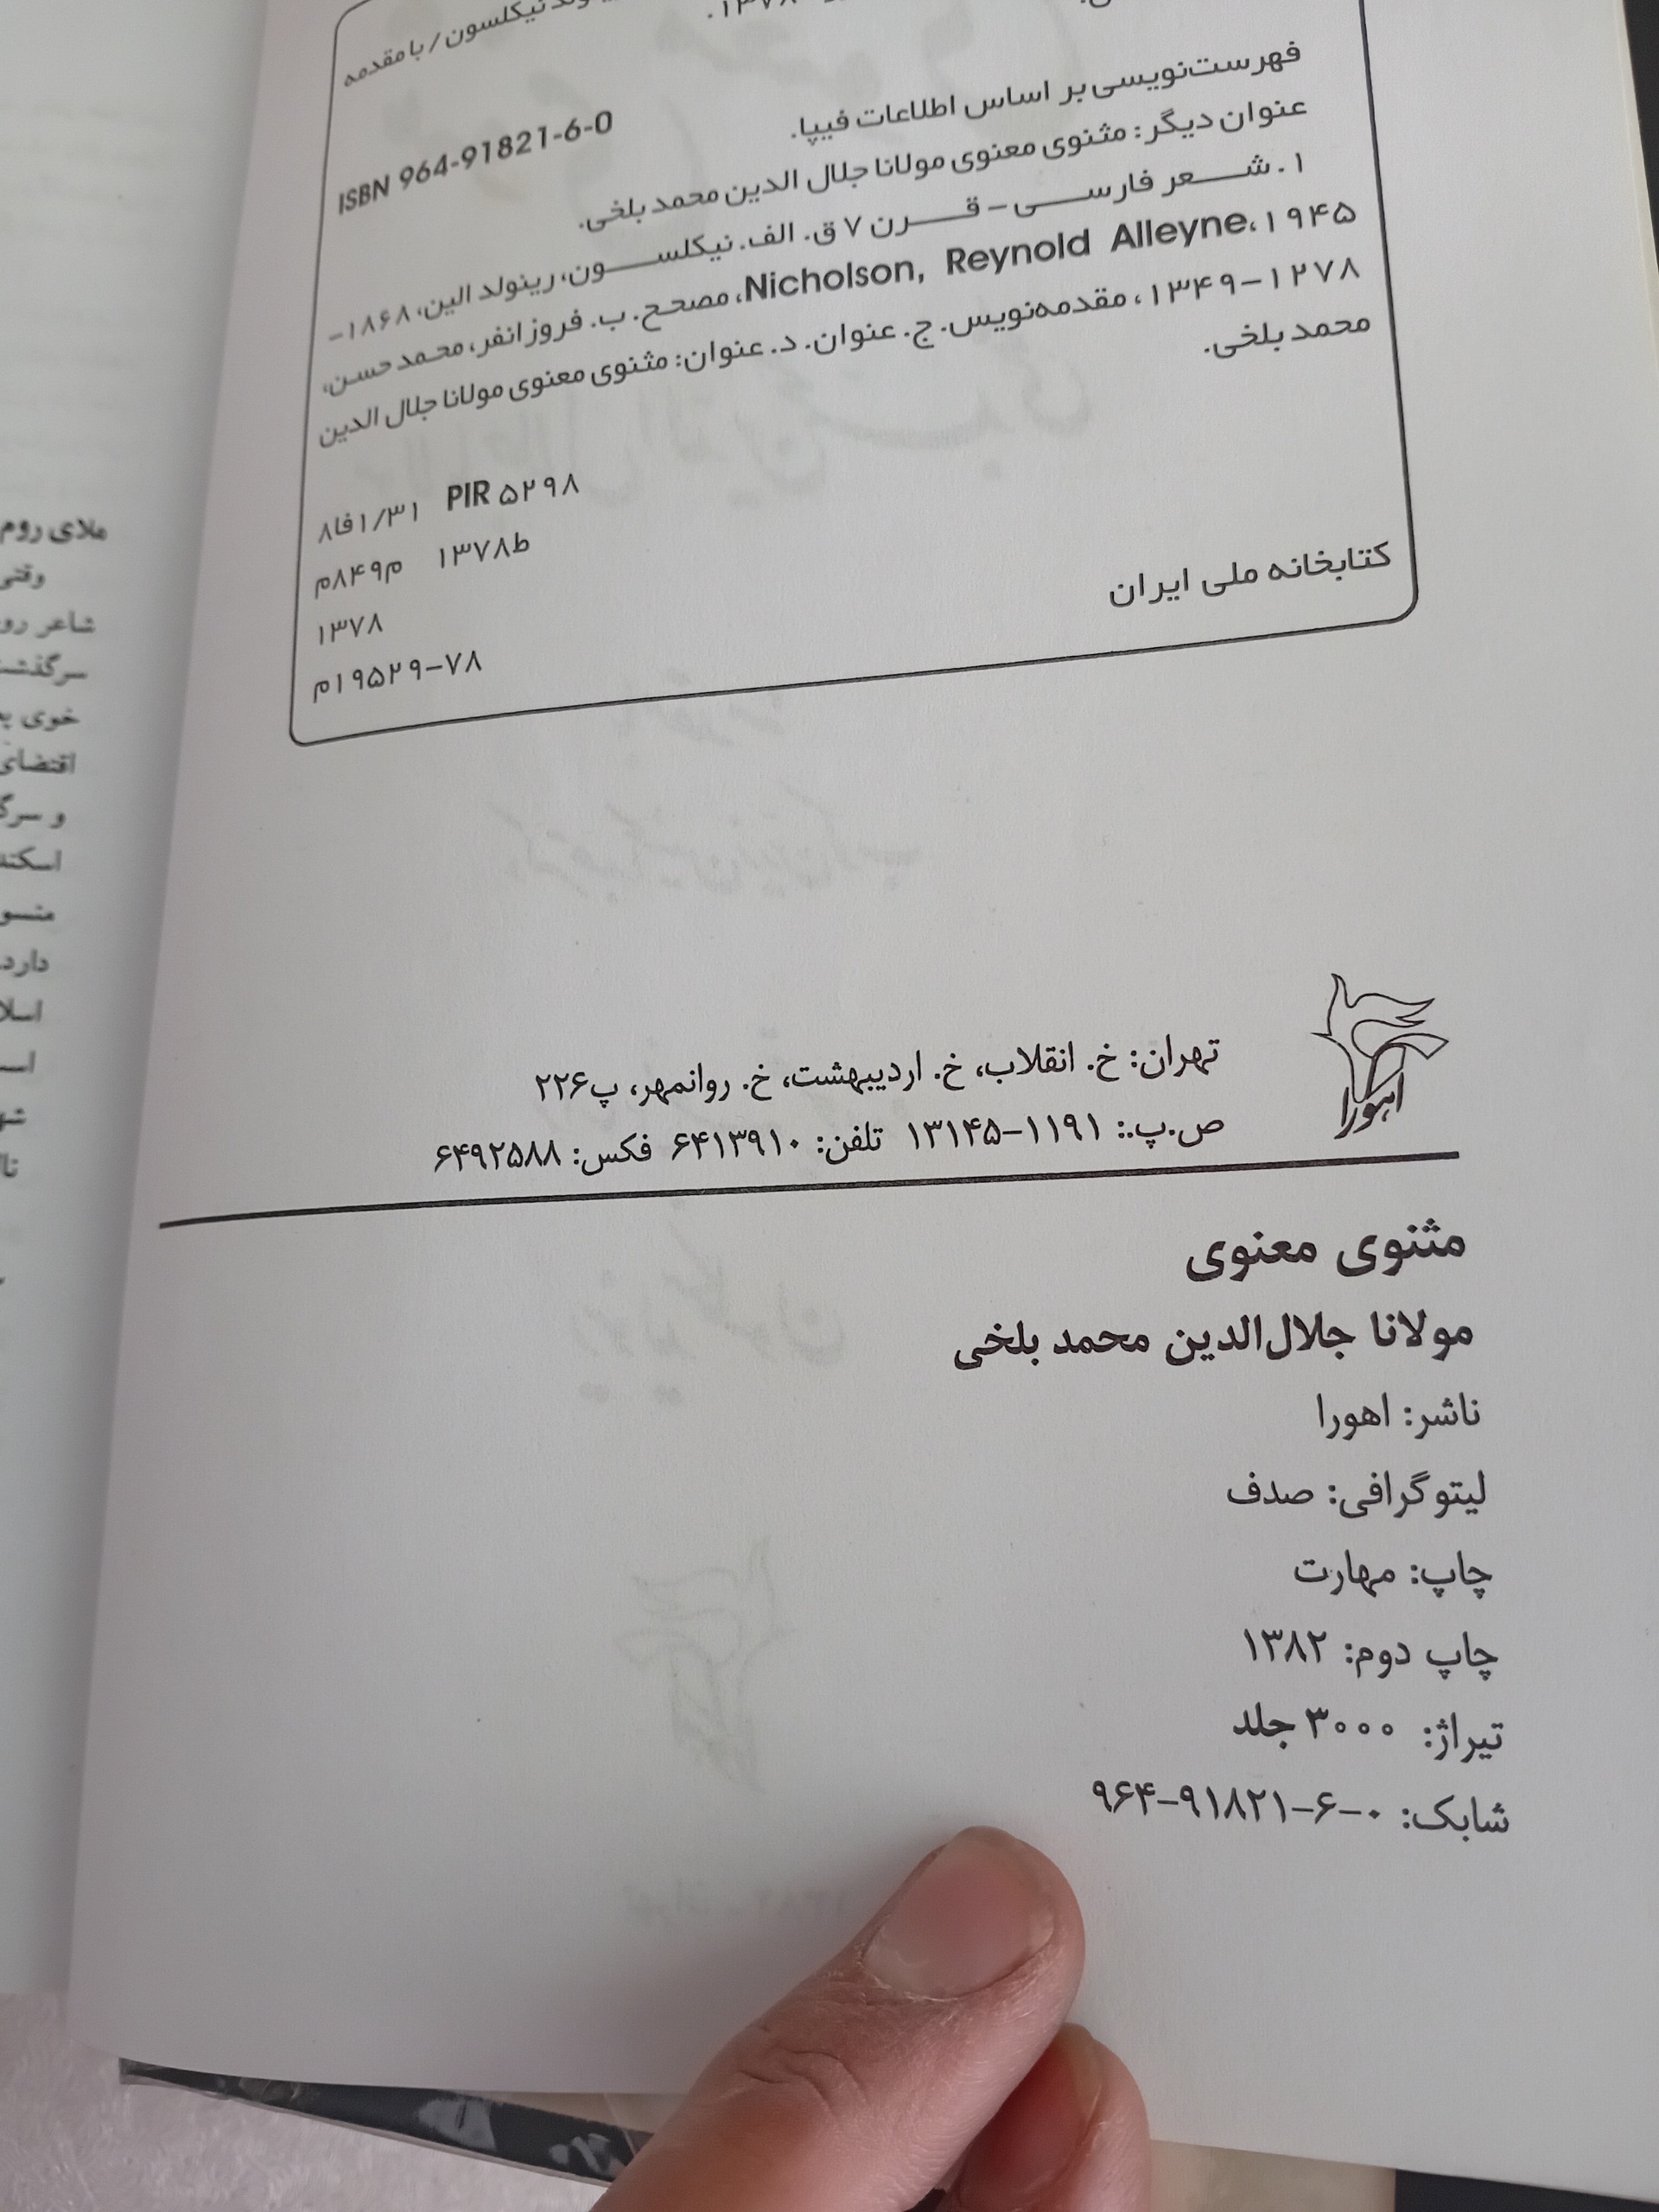 نیکلسون / با مقدمه
۱۳۷۸.
فهرست‌نویسی بر اساس اطلاعات فیپا.
ISBN 964-91821-6-0
عنوان دیگر: مثنوی معنوی مولانا جلال الدین محمد بلخی.
۱. شعر فارسی – قرن ۷ ق. الف. نیکلسون، رینولد الین، ۱۸۶۸–
۱۹۴۵ ،Nicholson, Reynold Alleyne، مصحح. ب. فروزانفر، محمد حسن،
۱۲۷۸–۱۳۴۹، مقدمه‌نویس. ج. عنوان. د. عنوان: مثنوی معنوی مولانا جلال الدین
محمد بلخی.
۸فا۱/۳۱ PIR ۵۲۹۸
م۸۴۹م ۱۳۷۸ط
۱۳۷۸
کتابخانه ملی ایران
م۷۸–۱۹۵۲۹
اهورا
تهران: خ. انقلاب، خ. اردیبهشت، خ. روانمهر، پ۲۲۶
ص.پ.: ۱۱۹۱–۱۳۱۴۵ تلفن: ۶۴۱۳۹۱۰ فکس: ۶۴۹۲۵۸۸
مثنوی معنوی
مولانا جلال‌الدین محمد بلخی
ناشر: اهورا
لیتوگرافی: صدف
چاپ: مهارت
چاپ دوم: ۱۳۸۲
تیراژ: ۳۰۰۰ جلد
شابک: ۰–۶–۹۱۸۲۱–۹۶۴
ملای روم
وقتی
شاعر
خوی
دارد